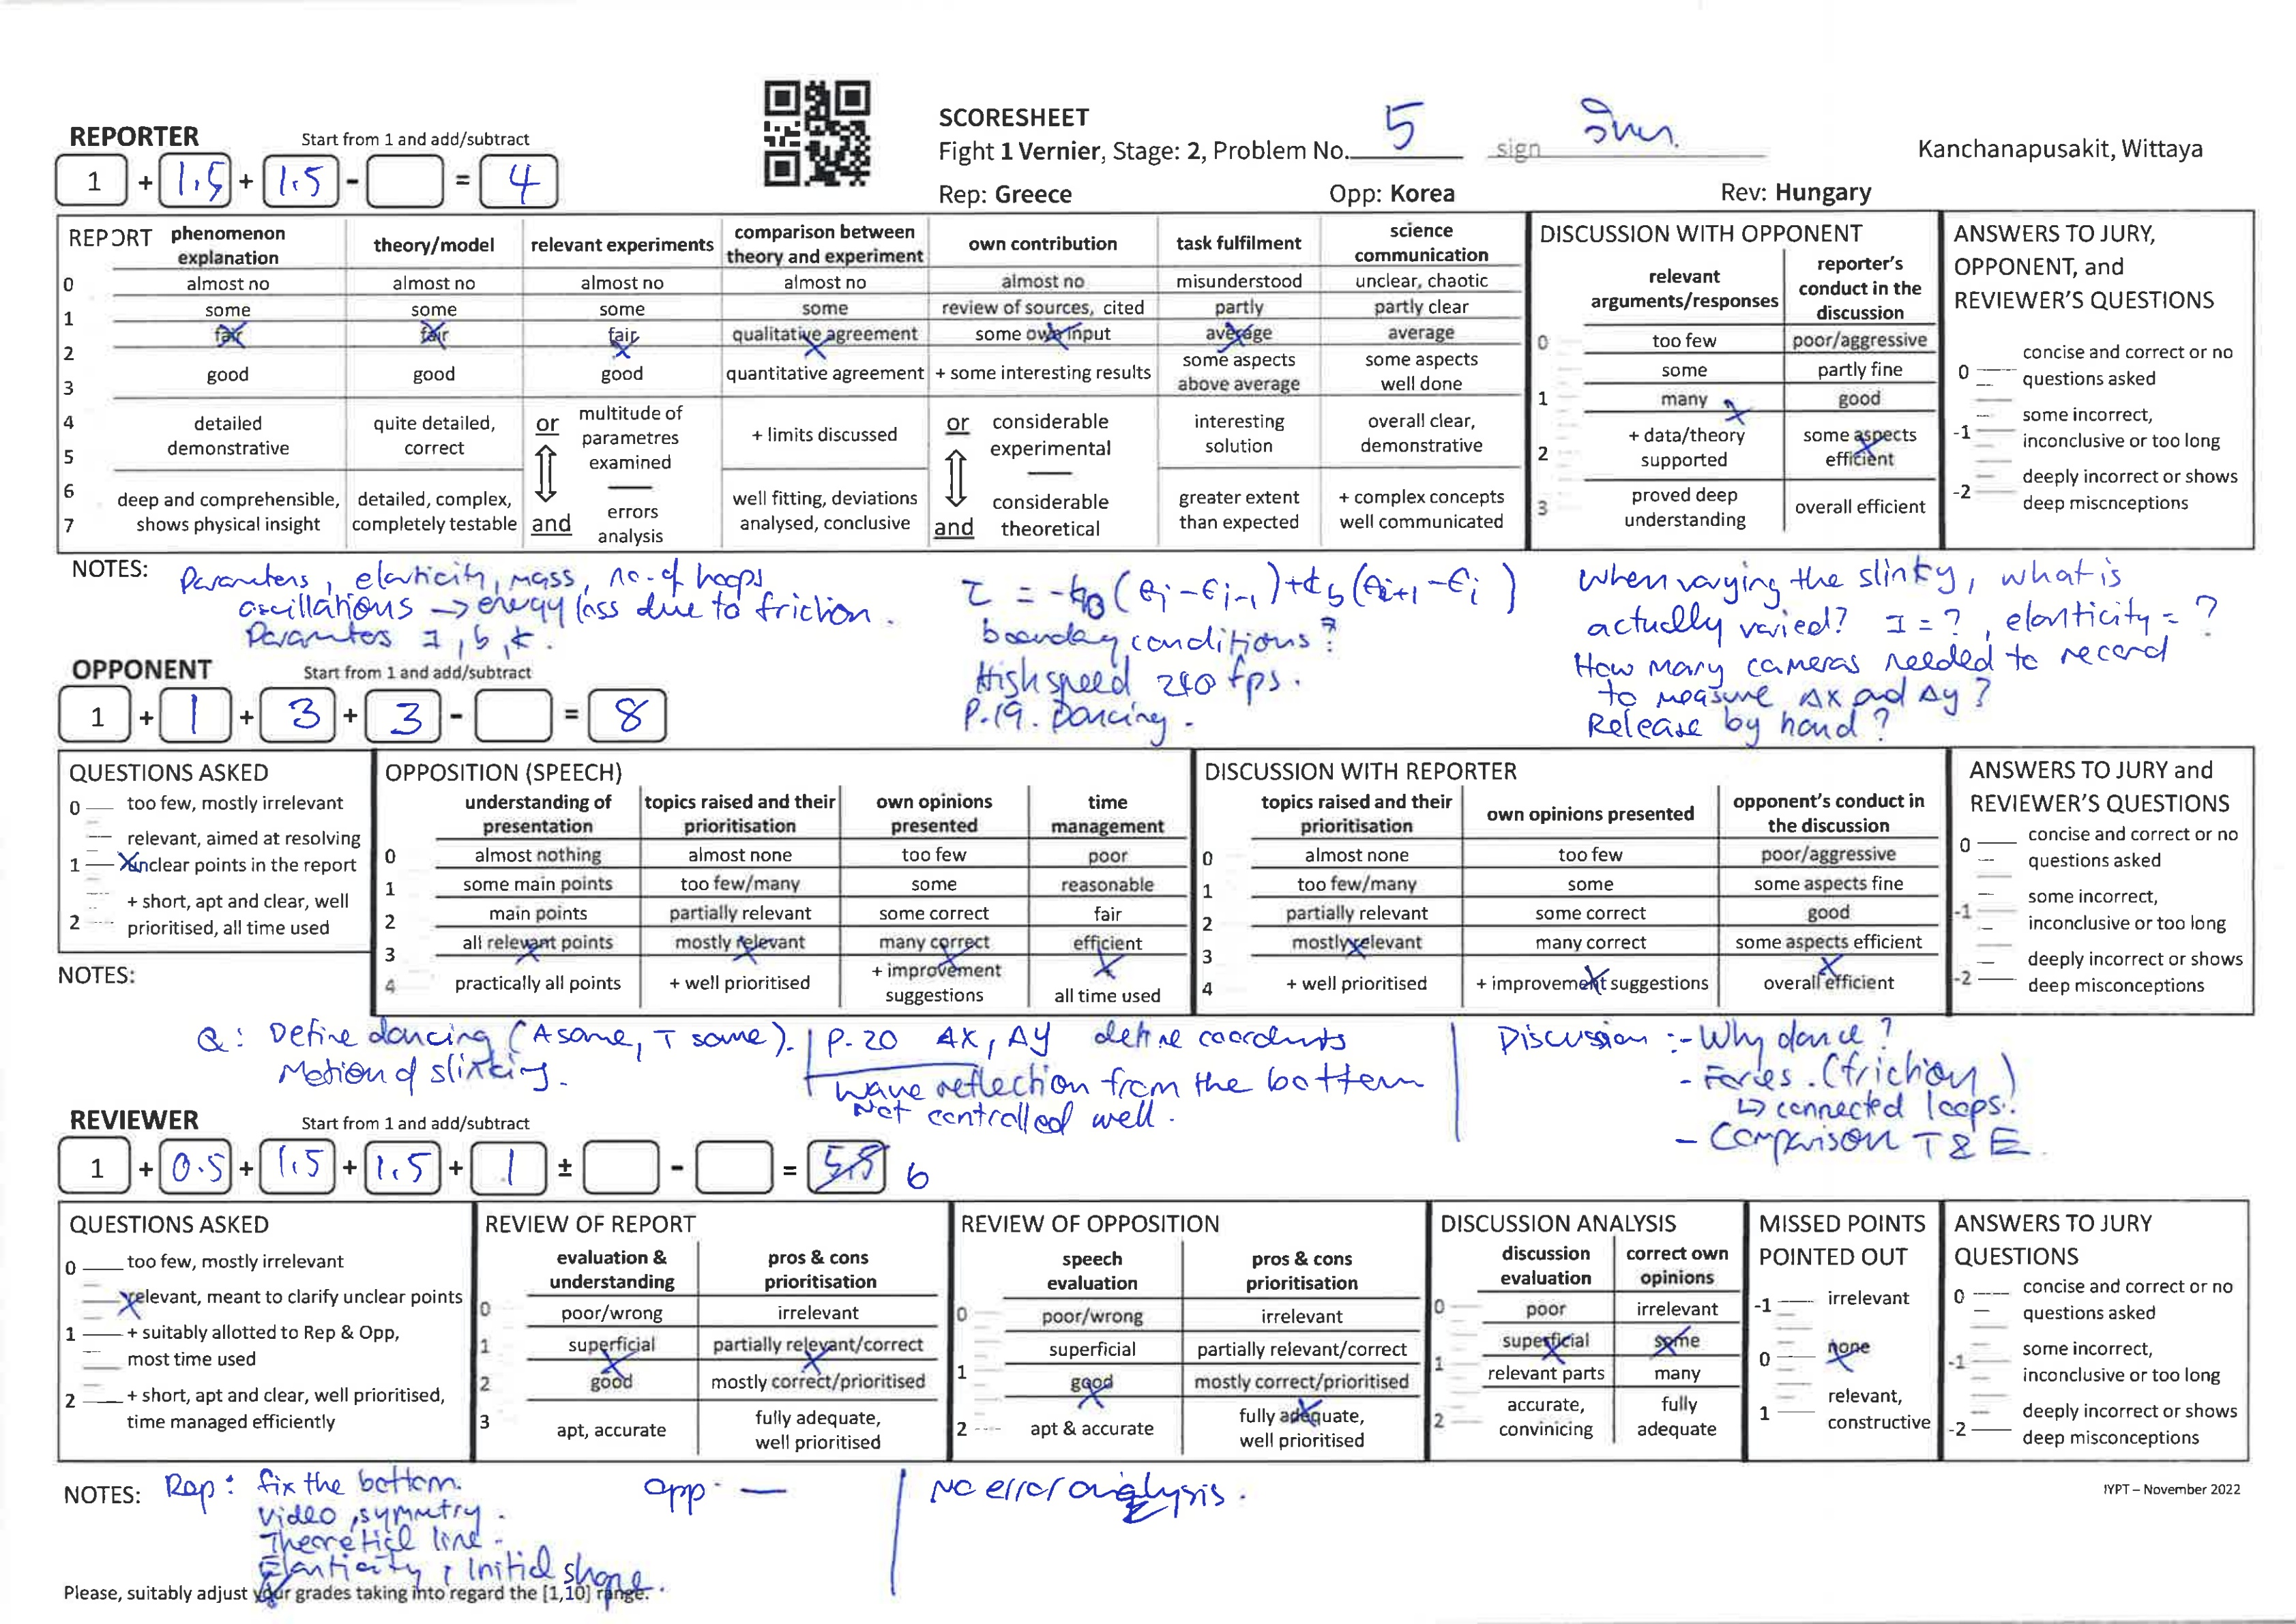 SCORESHEET
Fight 1 Vernier, Stage: 2, Problem No. 5 sign
Kanchanapusakit, Wittaya
Rep: Greece Opp: Korea Rev: Hungary
REPORTER Start from 1 and add/subtract
1 + 1.5 + 1.5 - = 4
REPORT
phenomenon explanation
theory/model
relevant experiments
comparison between theory and experiment
own contribution
task fulfilment
science communication
0 almost no almost no almost no almost no almost no misunderstood unclear, chaotic
1 some some some some review of sources, cited partly partly clear
2 fair fair fair qualitative agreement some own input average average
3 good good good quantitative agreement + some interesting results some aspects above average some aspects well done
4
5
detailed demonstrative
quite detailed, correct
or multitude of parametres examined
+ limits discussed
or considerable experimental
interesting solution
overall clear, demonstrative
6
7
deep and comprehensible, shows physical insight
detailed, complex, completely testable
and errors analysis
well fitting, deviations analysed, conclusive
and considerable theoretical
greater extent than expected
+ complex concepts well communicated
DISCUSSION WITH OPPONENT
relevant arguments/responses
reporter's conduct in the discussion
0 too few poor/aggressive
some partly fine
1 many good
2 + data/theory supported some aspects efficient
3 proved deep understanding overall efficient
ANSWERS TO JURY, OPPONENT, and REVIEWER'S QUESTIONS
0 concise and correct or no questions asked
-1 some incorrect, inconclusive or too long
-2 deeply incorrect or shows deep miscnceptions
NOTES:
Parameters, elasticity, mass, no. of hoops
oscillations → energy loss due to friction.
I, b, k.
boundary conditions?
High speed 240 fps.
P.19. Dancing.
When varying the slinky, what is
actually varied? I = ?, elasticity = ?
How many cameras needed to record
to measure ΔX and Δy?
Release by hand?
OPPONENT Start from 1 and add/subtract
1 + 1 + 3 + 3 - = 8
QUESTIONS ASKED
0 too few, mostly irrelevant
1 relevant, aimed at resolving unclear points in the report
2 + short, apt and clear, well prioritised, all time used
OPPOSITION (SPEECH)
understanding of presentation
topics raised and their prioritisation
own opinions presented
time management
0 almost nothing almost none too few poor
1 some main points too few/many some reasonable
2 main points partially relevant some correct fair
3 all relevant points mostly relevant many correct efficient
4 practically all points + well prioritised + improvement suggestions all time used
DISCUSSION WITH REPORTER
topics raised and their prioritisation
own opinions presented
opponent's conduct in the discussion
0 almost none too few poor/aggressive
1 too few/many some some aspects fine
2 partially relevant some correct good
3 mostly relevant many correct some aspects efficient
4 + well prioritised + improvement suggestions overall efficient
ANSWERS TO JURY and REVIEWER'S QUESTIONS
0 concise and correct or no questions asked
-1 some incorrect, inconclusive or too long
-2 deeply incorrect or shows deep misconceptions
NOTES:
Q: Define dancing (A same, T same).
Motion of
P.20 ΔX, ΔY define
wave reflection from the bottom
Not controlled well.
Discussion :- Why dance?
- Forces. (friction)
↳ connected loops.
- Comparison T & E.
REVIEWER Start from 1 and add/subtract
1 + 0.5 + 1.5 + 1.5 + 1 ± - = 5.5 6
QUESTIONS ASKED
0 too few, mostly irrelevant
relevant, meant to clarify unclear points
1 + suitably allotted to Rep & Opp, most time used
2 + short, apt and clear, well prioritised, time managed efficiently
REVIEW OF REPORT
evaluation & understanding
pros & cons prioritisation
0 poor/wrong irrelevant
1 superficial partially relevant/correct
2 good mostly correct/prioritised
3 apt, accurate fully adequate, well prioritised
REVIEW OF OPPOSITION
speech evaluation
pros & cons prioritisation
0 poor/wrong irrelevant
superficial partially relevant/correct
1 good mostly correct/prioritised
2 apt & accurate fully adequate, well prioritised
DISCUSSION ANALYSIS
discussion evaluation
correct own opinions
0 poor irrelevant
superficial some
1 relevant parts many
2 accurate, convinicing fully adequate
MISSED POINTS POINTED OUT
-1 irrelevant
0 none
1 relevant, constructive
ANSWERS TO JURY QUESTIONS
0 concise and correct or no questions asked
-1 some incorrect, inconclusive or too long
-2 deeply incorrect or shows deep misconceptions
NOTES:
Rep: fix the bottom.
Video, symmetry.
Theoretical line.
Elasticity, Initial shape.
opp. —
No error analysis.
IYPT – November 2022
Please, suitably adjust your grades taking into regard the [1,10] range.